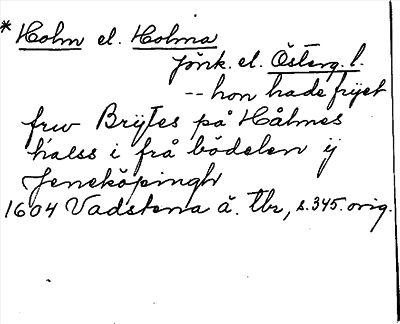 * Holm el. Holma
Jönk. el. Österg. l.
-- hon hade frijet
frw Brijtes på Hålmes
halss i frå bödelen ij
Jeneköpingh
1604 Vadstena å. tbr, s. 345. orig.